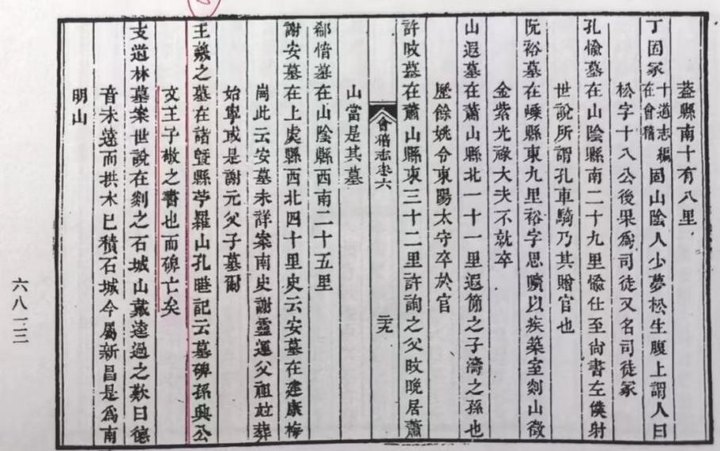 葢縣南十有八里
丁固冢十道志編在會稽固山陰人少夢松生腹上謂人曰
松字十八公後果爲司徒又名司徒冢
孔愉墓在山陰縣南二十九里愉仕至尚書左僕射
世說所謂孔車騎乃其贈官也
阮裕墓在嵊縣東九里裕字思曠以疾築室剡山徵
金紫光祿大夫不就卒
山遐墓在蕭山縣北一十一里遐簡之子濤之孫也
歷餘姚令東陽太守卒於官
許㫤墓在蕭山縣東三十二里許詢之父㫤晚居蕭
會稽志卷六
三九
山當是其墓
郗愔墓在山陰縣西南二十五里
謝安墓在上虞縣西北四十里史云安墓在建康梅
崗此云安墓未詳案南史謝靈運父祖竝葬
始寧或是謝元父子墓爾
王羲之墓在諸曁縣苧羅山孔曄記云墓碑孫興公
文王子敬之書也而碑亡矣
支道林墓案世說在剡之石城山戴逵過之歎曰德
音未遠而拱木已積石城今屬新昌是爲南
明山
六八一三